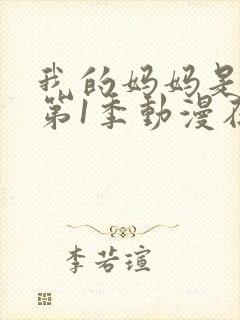 我的妈妈是
第1季動漫在
李若瑄